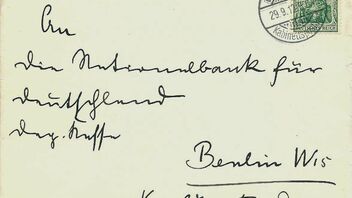 29.9.17
An
die Nationalbank für
Deutschland
Dep. Kasse
Berlin W15